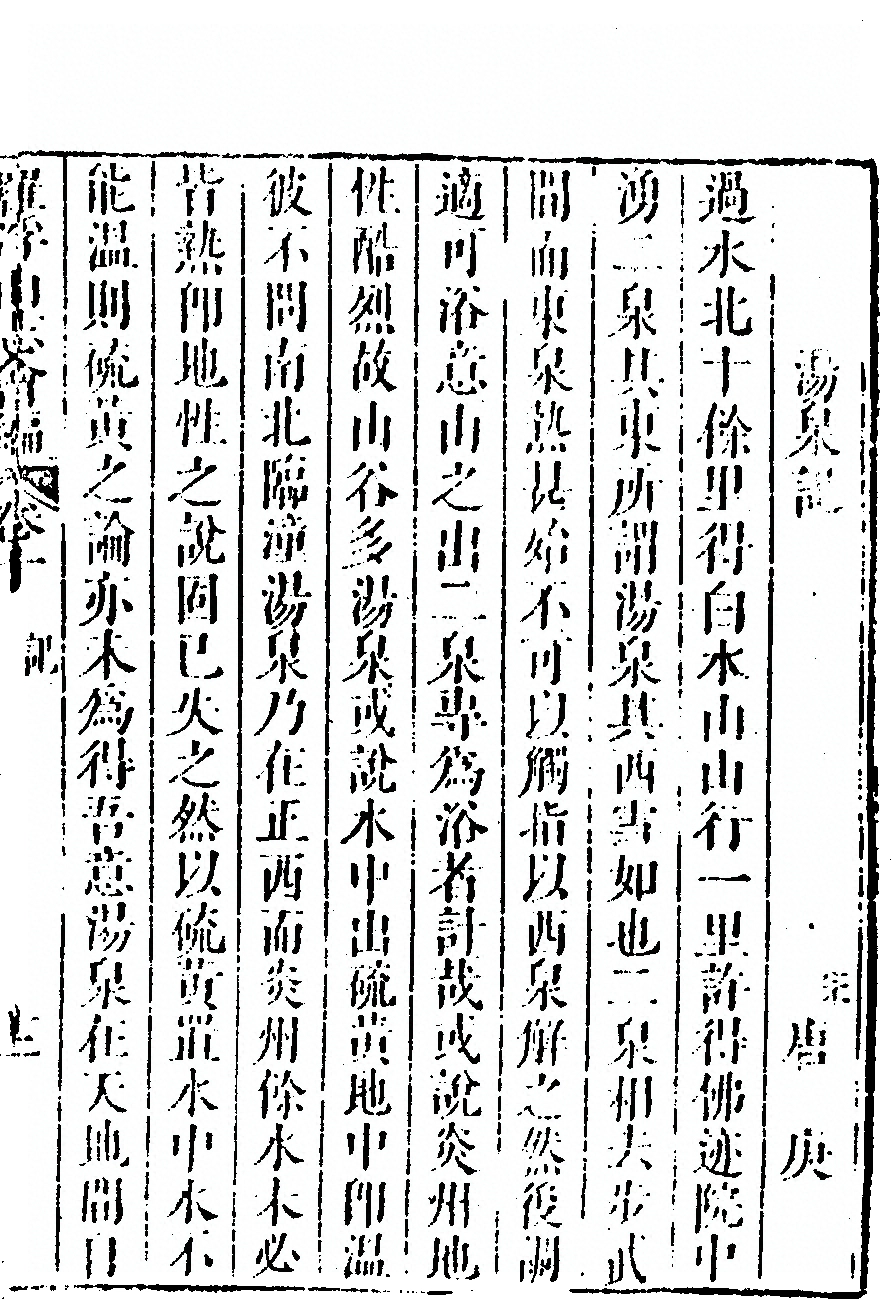 湯泉記
宋 唐庚
過水北十餘里得白水山山行一里許得佛迹院中
湧二泉其東所謂湯泉其西雪如也二泉相去步武
間而東泉熱甚殆不可以觸指以西泉解之然後調
適可浴意山之出二泉專為浴者計哉或說炎州地
性酷烈故山谷多湯泉或說水中出硫黃地中即溫
彼不問南北臨潼湯泉乃在正西而炎州餘水未必
皆熱即地性之說固已失之然以硫黃置水中水不
能溫則硫黃之論亦未為得吾意湯泉在天地間自
羅浮山志會編 卷十一 記